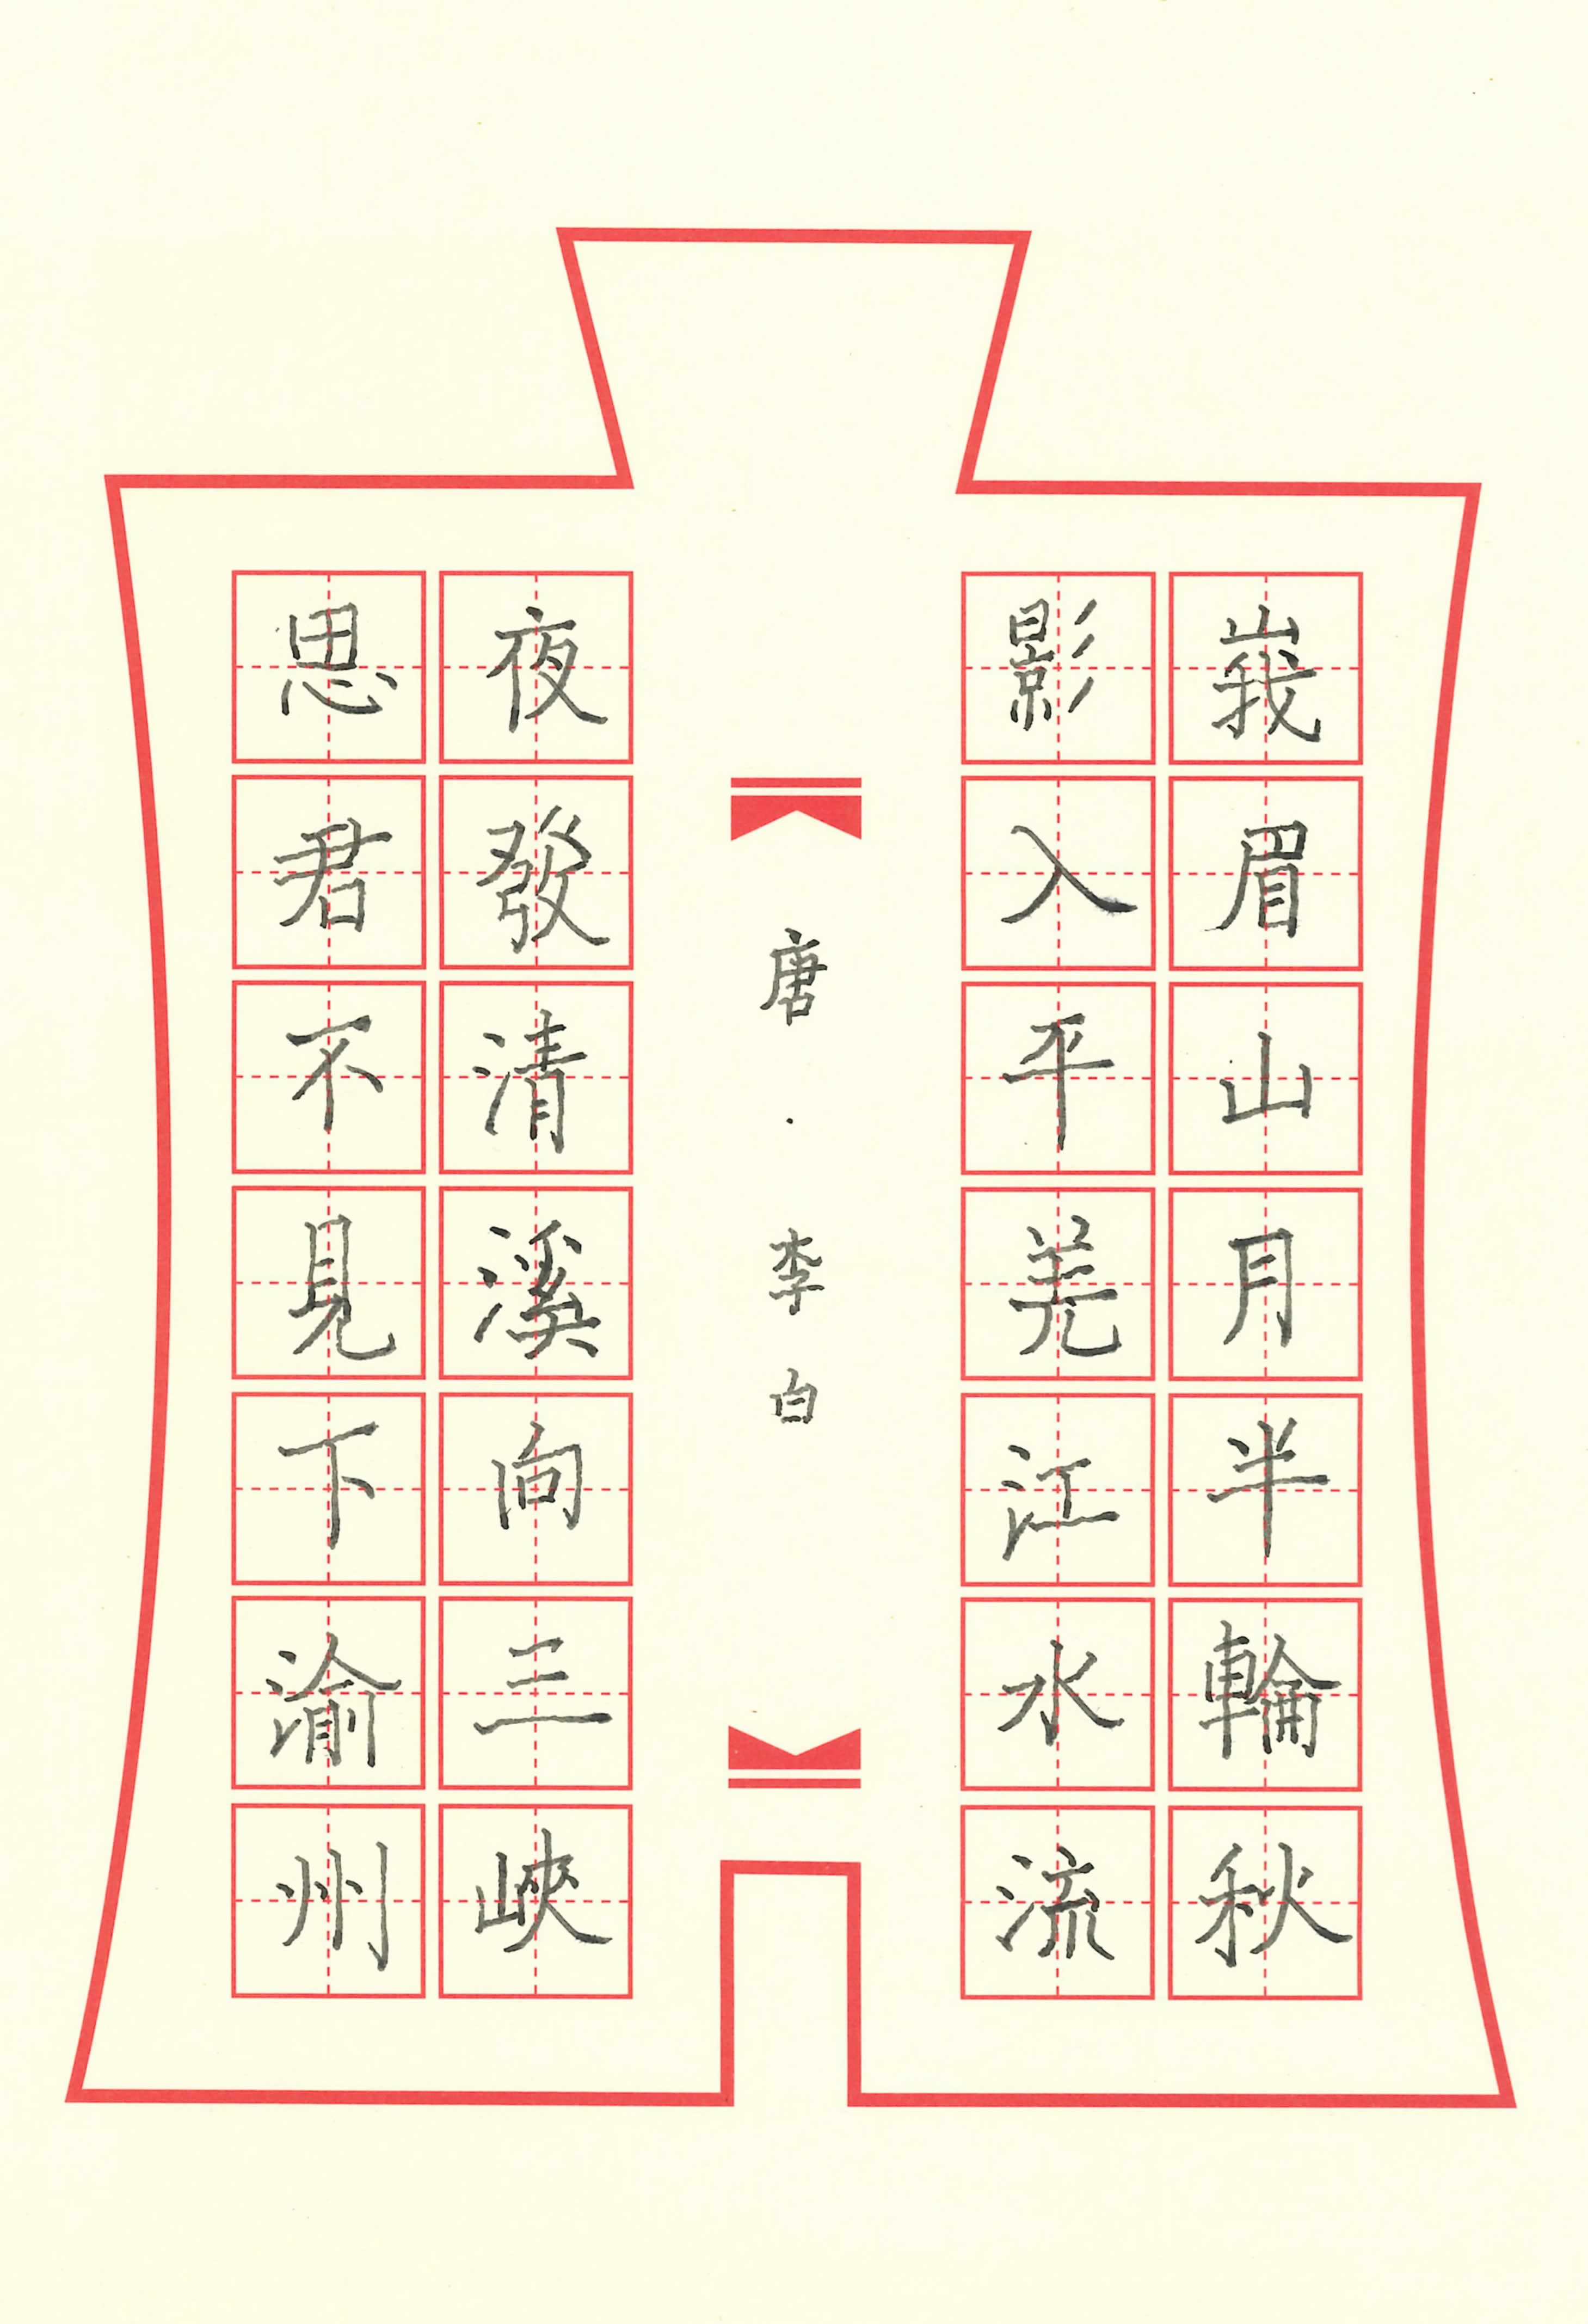 峩眉山月半輪秋
影入平羌江水流
唐·李白
夜發清溪向三峽
思君不見下渝州